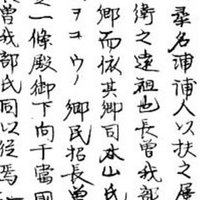 桑名浦浦人以扶之屢
衛之遠祖也長曽我部
郷而依其郷司本山氏
ヲコウノ郷民招長曽
之一條殿御下向于當国
曽我部氏同以従焉